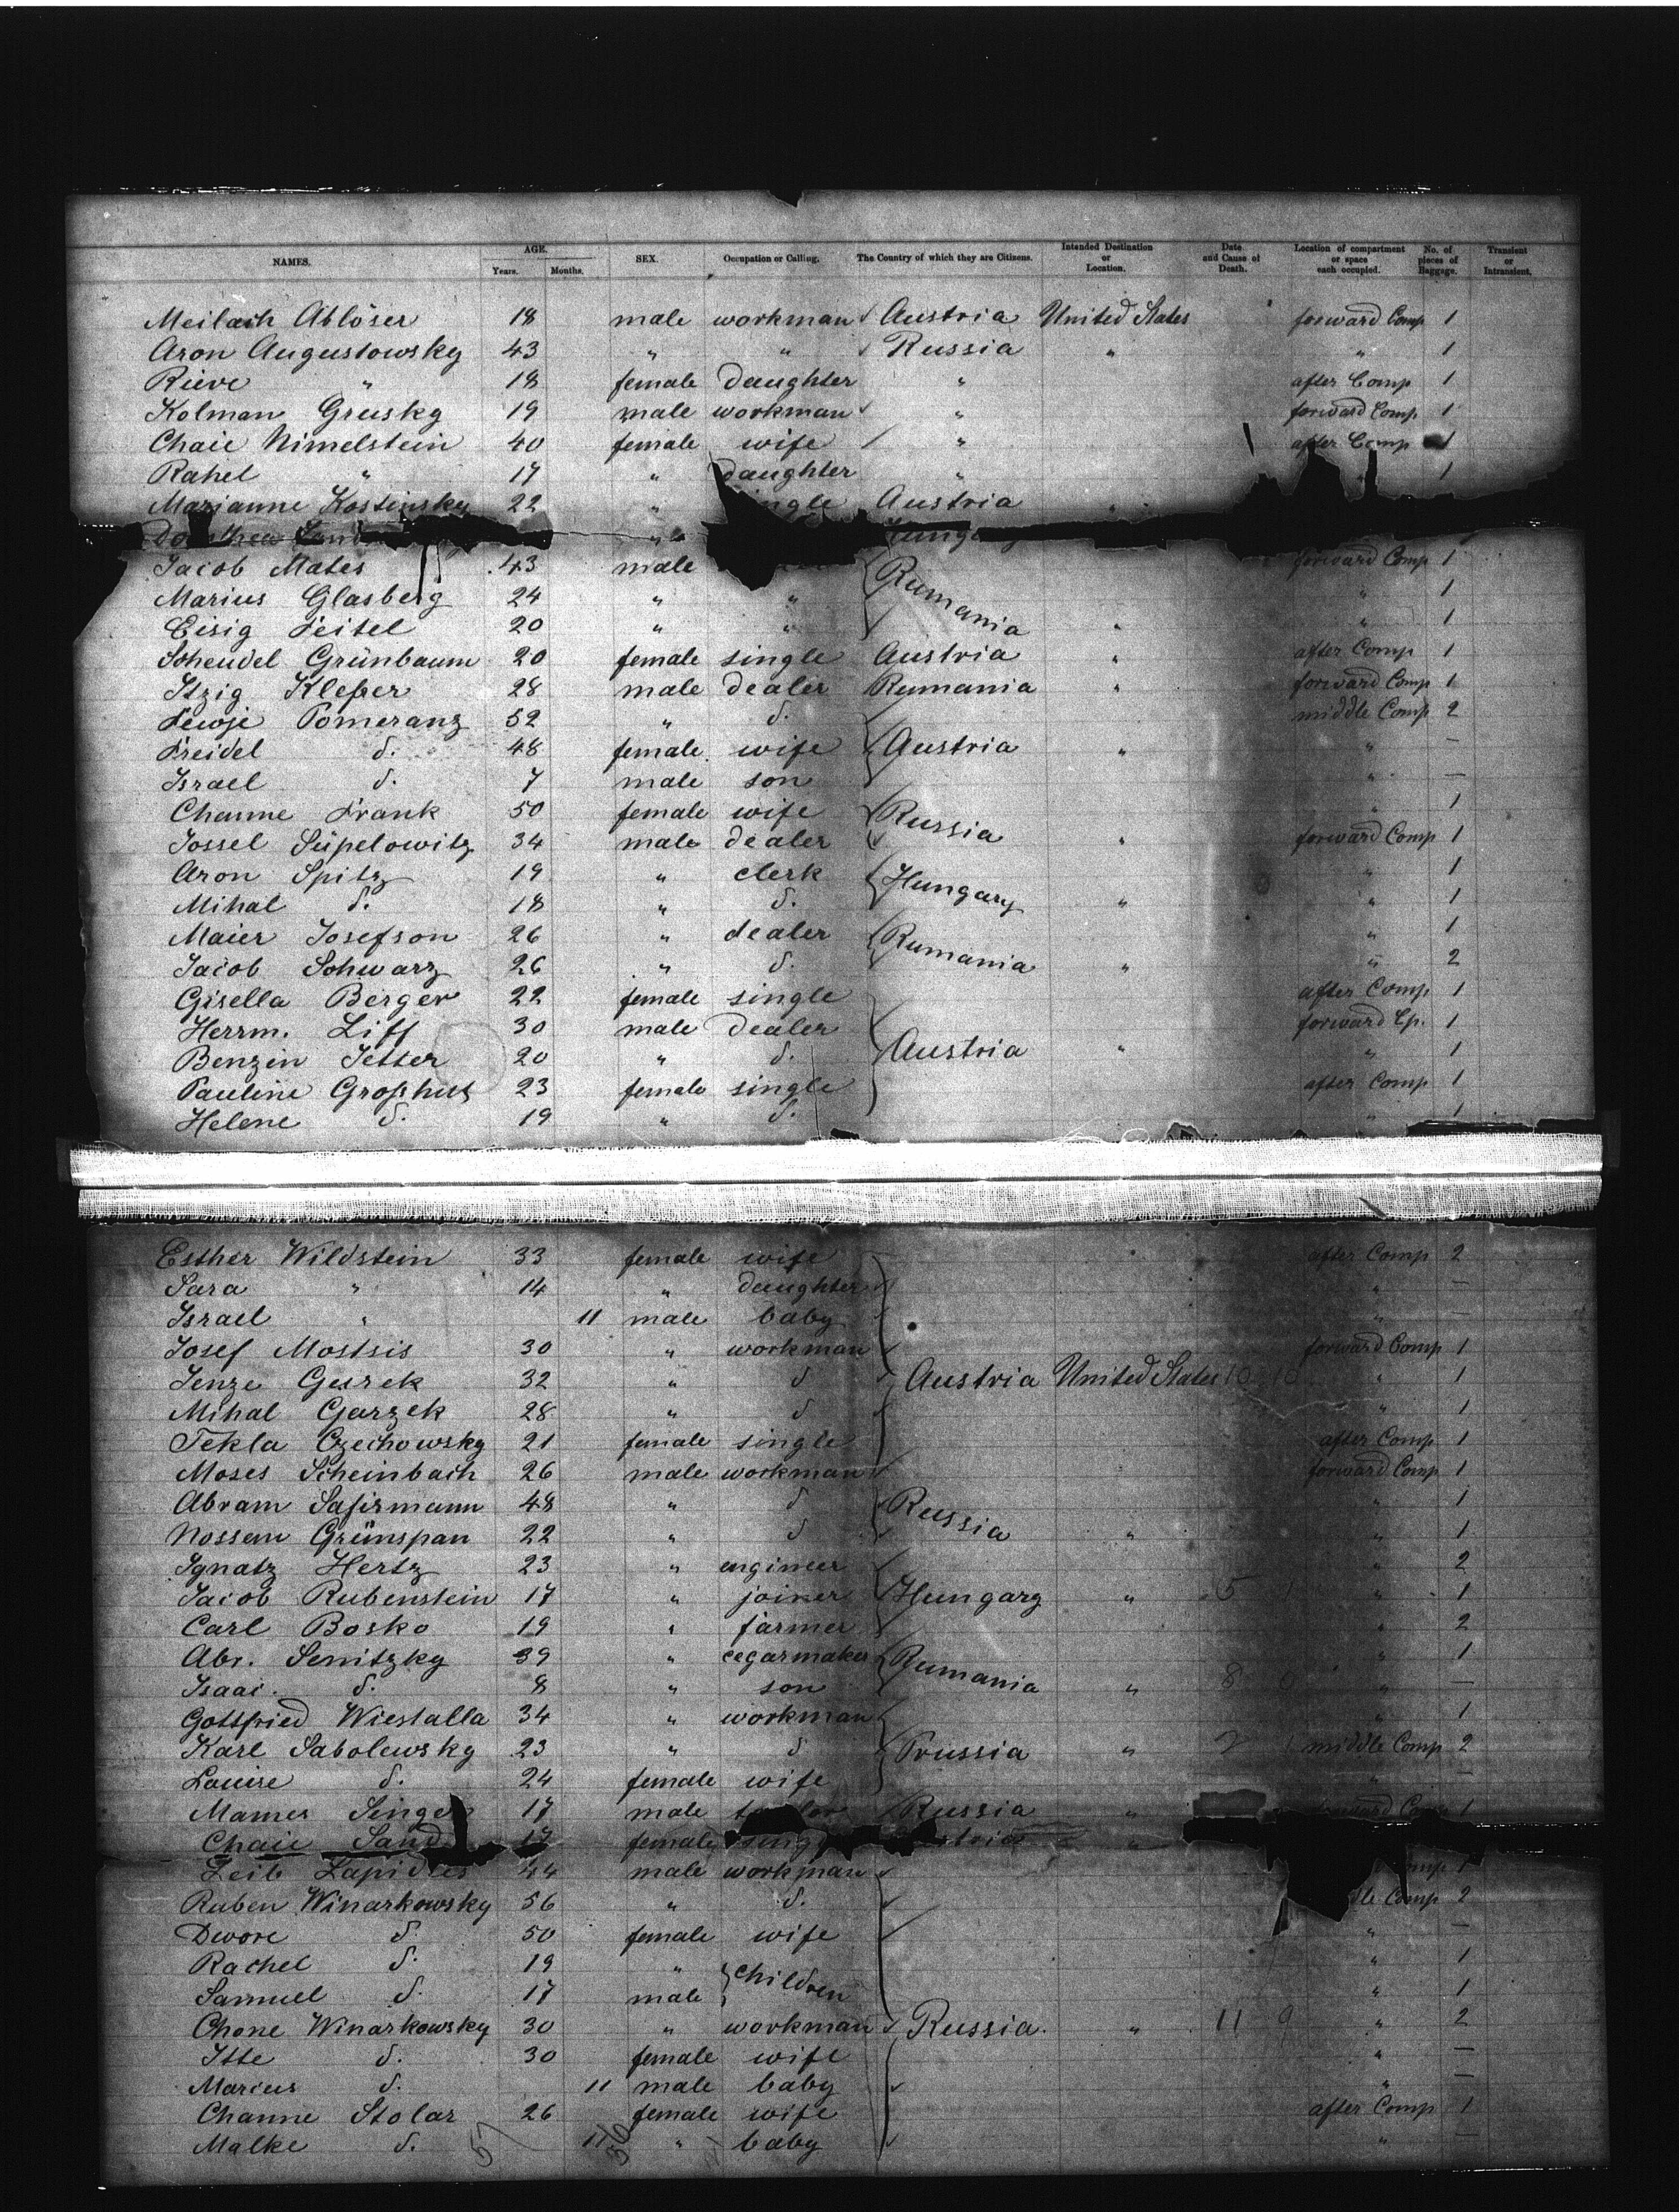 NAMES. AGE. Years. Months. SEX. Occupation or Calling. The Country of which they are Citizens. Intended Destination or Location. Date and Cause of Death. Location of compartment or space each occupied. No. of pieces of Baggage. Transient or Intransient.
Meilach Ablöser 18 male workman Austria United States forward Comp 1
Aron Augustowsky 43 " " Russia " " 1
Rieve " 18 female daughter " after Comp 1
Kolman Grusky 19 male workman " forward Comp 1
Chaie Nimelstein 40 female wife " after Comp 1
Rahel " 17 " daughter " " 1
Marianne Kostinsky 22 " single Austria "
Dorothea "
Jacob Mates 43 male forward Comp 1
Marius Glasberg 24 " " Rumania " 1
Eisig Feitel 20 " " " " 1
Scheudel Grünbaum 20 female single Austria " after Comp 1
Itzig Klefer 28 male dealer Rumania " forward Comp 1
Lewje Pomeranz 52 " d. middle Comp 2
Freidel d. 48 female wife Austria " " —
Israel d. 7 male son " —
Channe Frank 50 female wife Russia " 1
Jossel Supelowitz 34 male dealer " forward Comp 1
Aron Spitz 19 " clerk Hungary " 1
Mihal d. 18 " d. " " 1
Maier Josefson 26 " dealer Rumania " 1
Jacob Schwarz 26 " d. " " 2
Gisella Berger 22 female single after Comp 1
Herrm. Liff 30 male dealer forward Cp. 1
Benzin Jetter 20 " d. Austria " " 1
Pauline Groshus 23 female single after Comp 1
Helene d. 19 " d. " 1
Esther Wildstein 33 female wife after Comp 2
Sara " 14 " daughter " —
Israel " 11 male baby " —
Josef Mostsis 30 " workman forward Comp 1
Jenze Gurek 32 " d Austria United States 10 10 " 1
Mihal Garzek 28 " d " 1
Tekla Czechowsky 21 female single after Comp 1
Moses Scheinbach 26 male workman forward Comp 1
Abram Safirmann 48 " d Russia " 1
Nossem Grünspan 22 " d " " 1
Ignatz Hertz 23 " engineer " 2
Jacob Rubenstein 17 " joiner Hungary " 5 " 1
Carl Bosko 19 " farmer " 2
Abr. Senitzky 39 " cegarmaker Rumania " 1
Isaac d. 8 " son " 8 " —
Gottfried Wiestalla 34 " workman " 1
Karl Sabolewsky 23 " d Prussia " 2 middle Comp 2
Louise d. 24 female wife " —
Mames Singer 17 male taylor Russia " forward Comp 1
Chaie Sand 17 female single Austria "
Leib Lapides 44 male workman Comp 1
Ruben Winarkowsky 56 " d. Comp 2
Dwore d. 50 female wife " —
Rachel d. 19 " children " 1
Samuel d. 17 male " 1
Chone Winarkowsky 30 " workman Russia. " 11 9 " 2
Itte d. 30 female wife " —
Marius d. 11 male baby " —
Channe Stolar 26 female wife after Comp 1
Malke d. 11 " baby " —
57 56